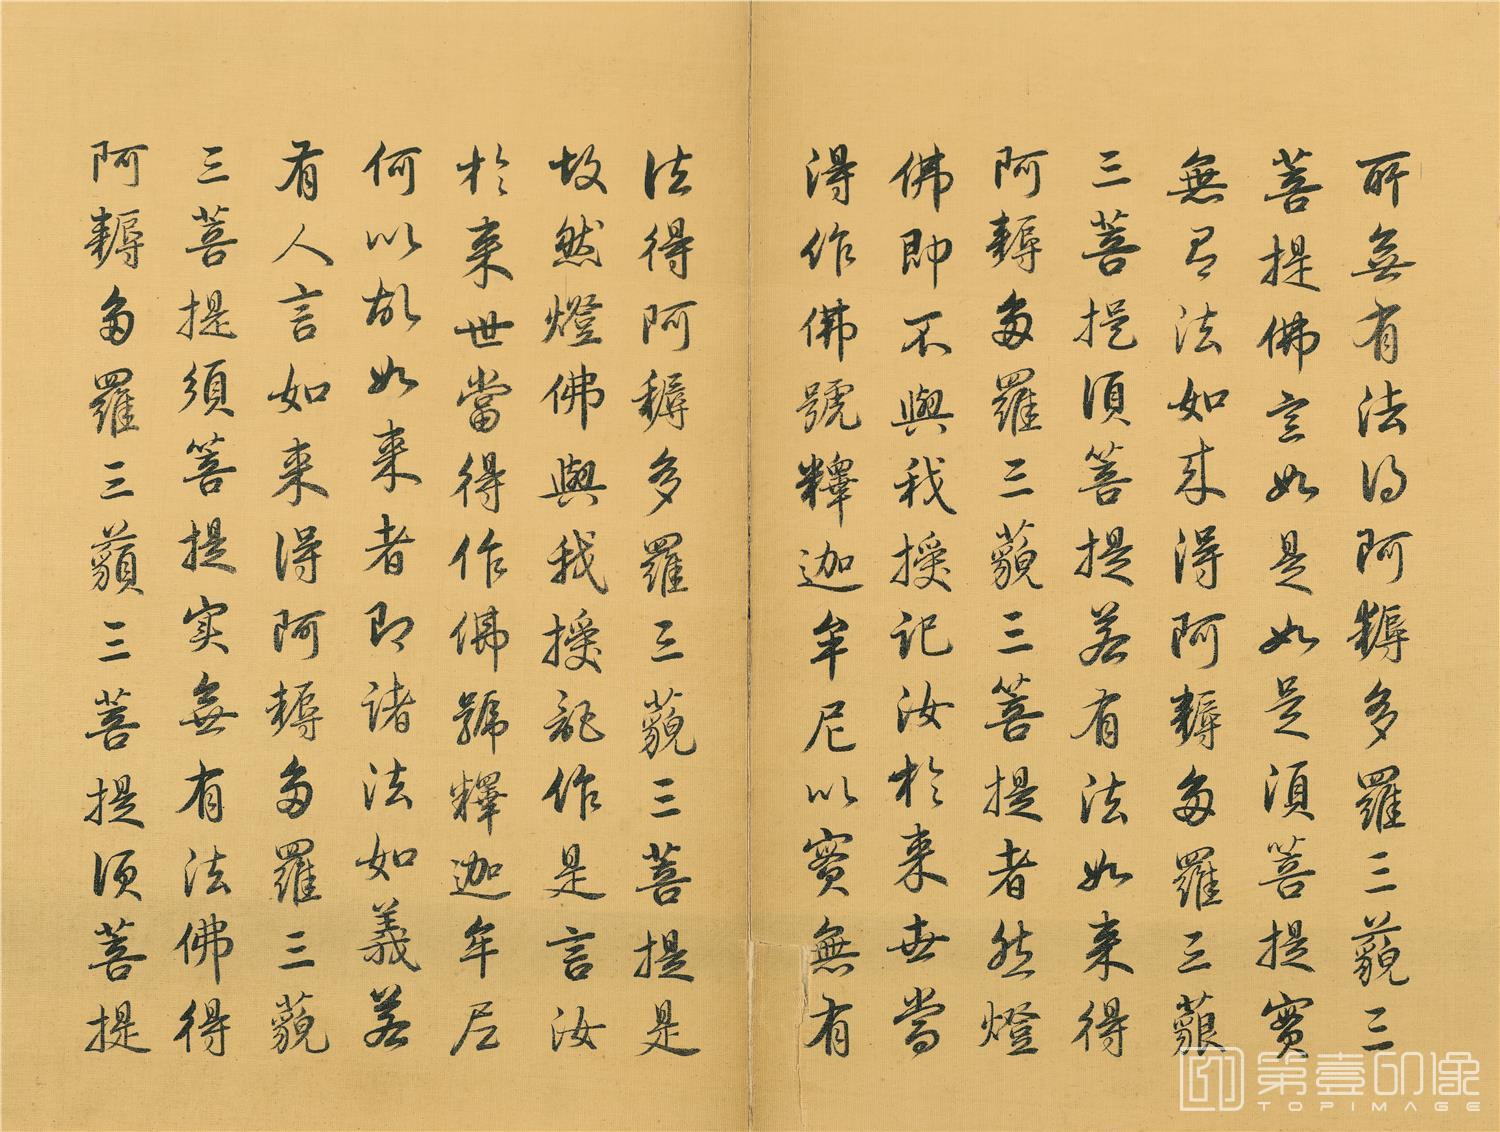 所無有法得阿耨多羅三藐三
菩提佛言如是如是須菩提實
無有法如来得阿耨多羅三藐
三菩提須菩提若有法如来得
阿耨多羅三藐三菩提者然燈
佛即不與我授記汝於来世當
得作佛號釋迦牟尼以實無有
法得阿耨多羅三藐三菩提是
故然燈佛與我授記作是言汝
於来世當得作佛號釋迦牟尼
何以故如来者即諸法如義若
有人言如来得阿耨多羅三藐
三菩提須菩提实無有法佛得
阿耨多羅三藐三菩提須菩提
第壹印像
TOPIMAGE